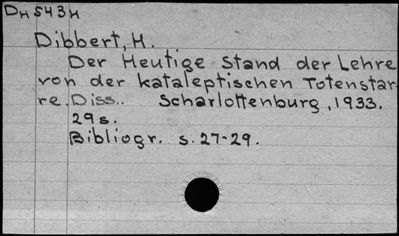 DH 543H
Dibbert, H.
Der Heutige Stand der Lehre
von der kataleptischen Totenstar
re. Diss.. Scharlottenburg, 1933.
29s.
Bibliogr. s. 27-29.